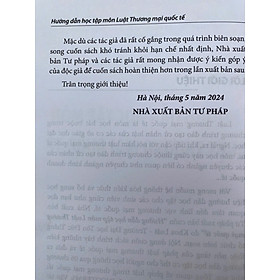 Hướng dẫn học tập môn Luật Thương mại quốc tế
Mặc dù các tác giả đã rất cố gắng trong quá trình biên soạn,
song cuốn sách khó tránh khỏi hạn chế nhất định, Nhà xuất
bản Tư pháp và các tác giả rất mong nhận được ý kiến góp ý
của độc giả để cuốn sách hoàn thiện hơn trong lần xuất bản sau.
Trân trọng giới thiệu!
Hà Nội, tháng 5 năm 2024
NHÀ XUẤT BẢN TƯ PHÁP